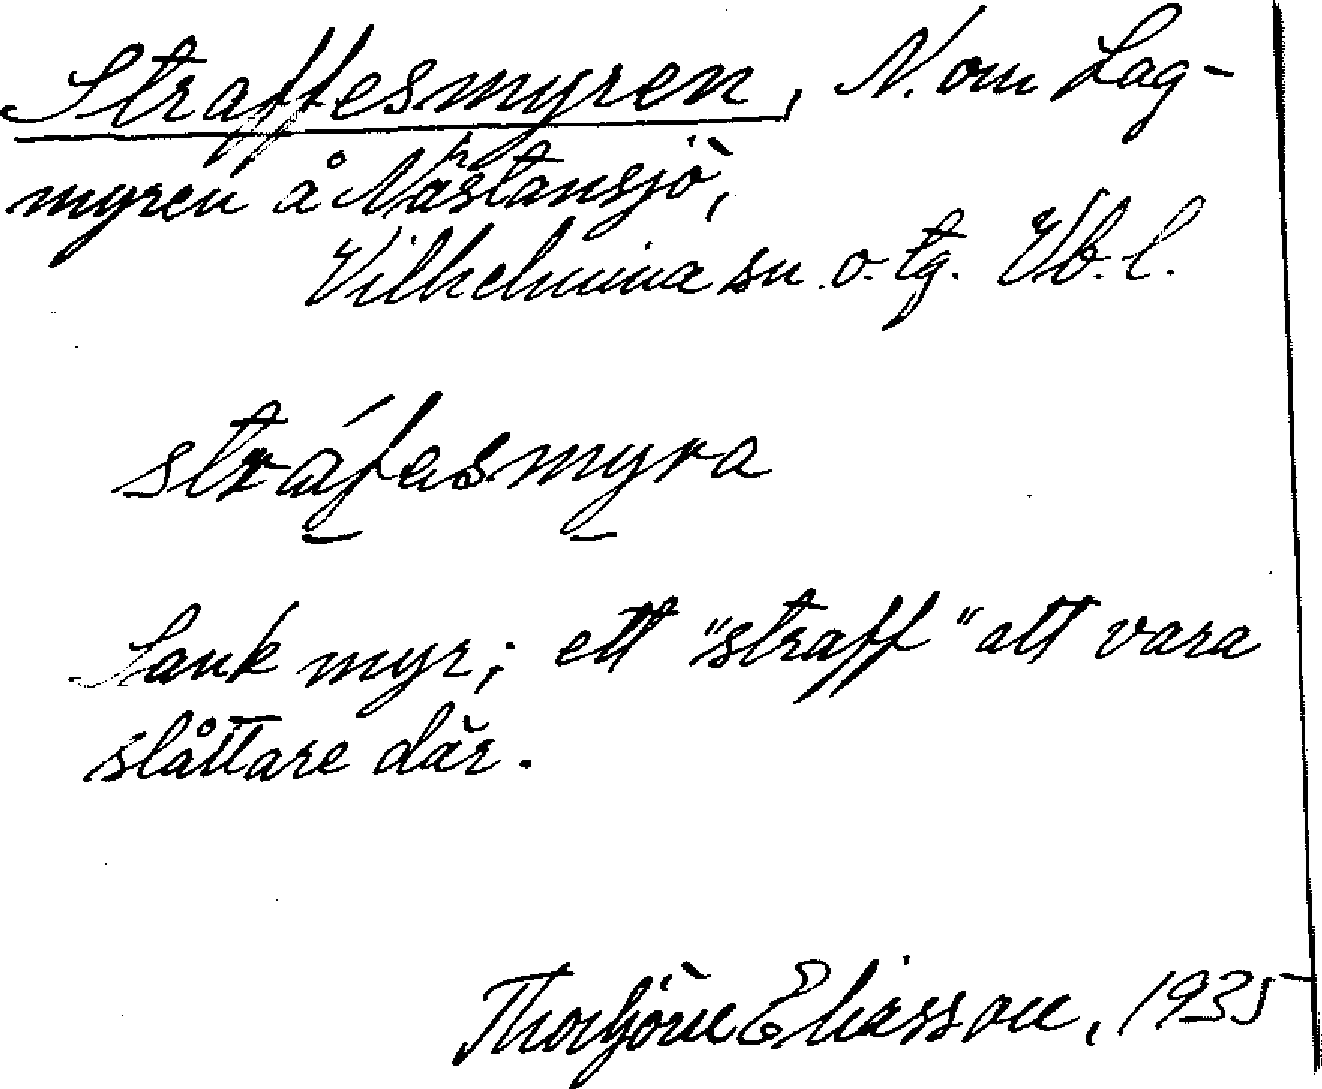 Straffesmyren, N. om Lag-
myren å Nästansjö,
Vilhelmina sn o. tg. Vb. l.
stráfasmyra
Sank myr; ett "straff" att vara
slåttare där.
Thorbjörn Eliasson, 1935